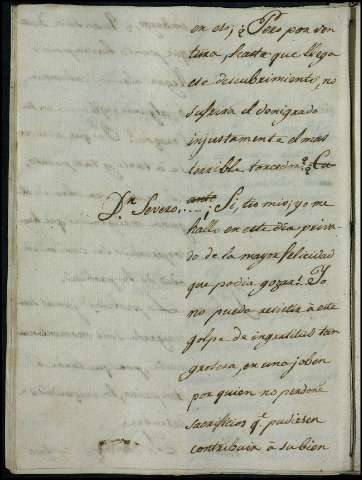 en eso; ¿Pero por ven
tura, hasta que llega
ese descubrimiento, no
sufrira el denigrado
injustamente el mas
terrible torcedor? ¿Cu
anto
Dn Severo......¡Si, tio mio; yo me
hallo en este dia priva
do de la mayor felicidad
que podia gozar! Yo
no puedo resistir à este
golpe de ingratitud tan
grosera, en una joben
por quien no perdone
sacrificios qe pudiesen
contribuir à su bien